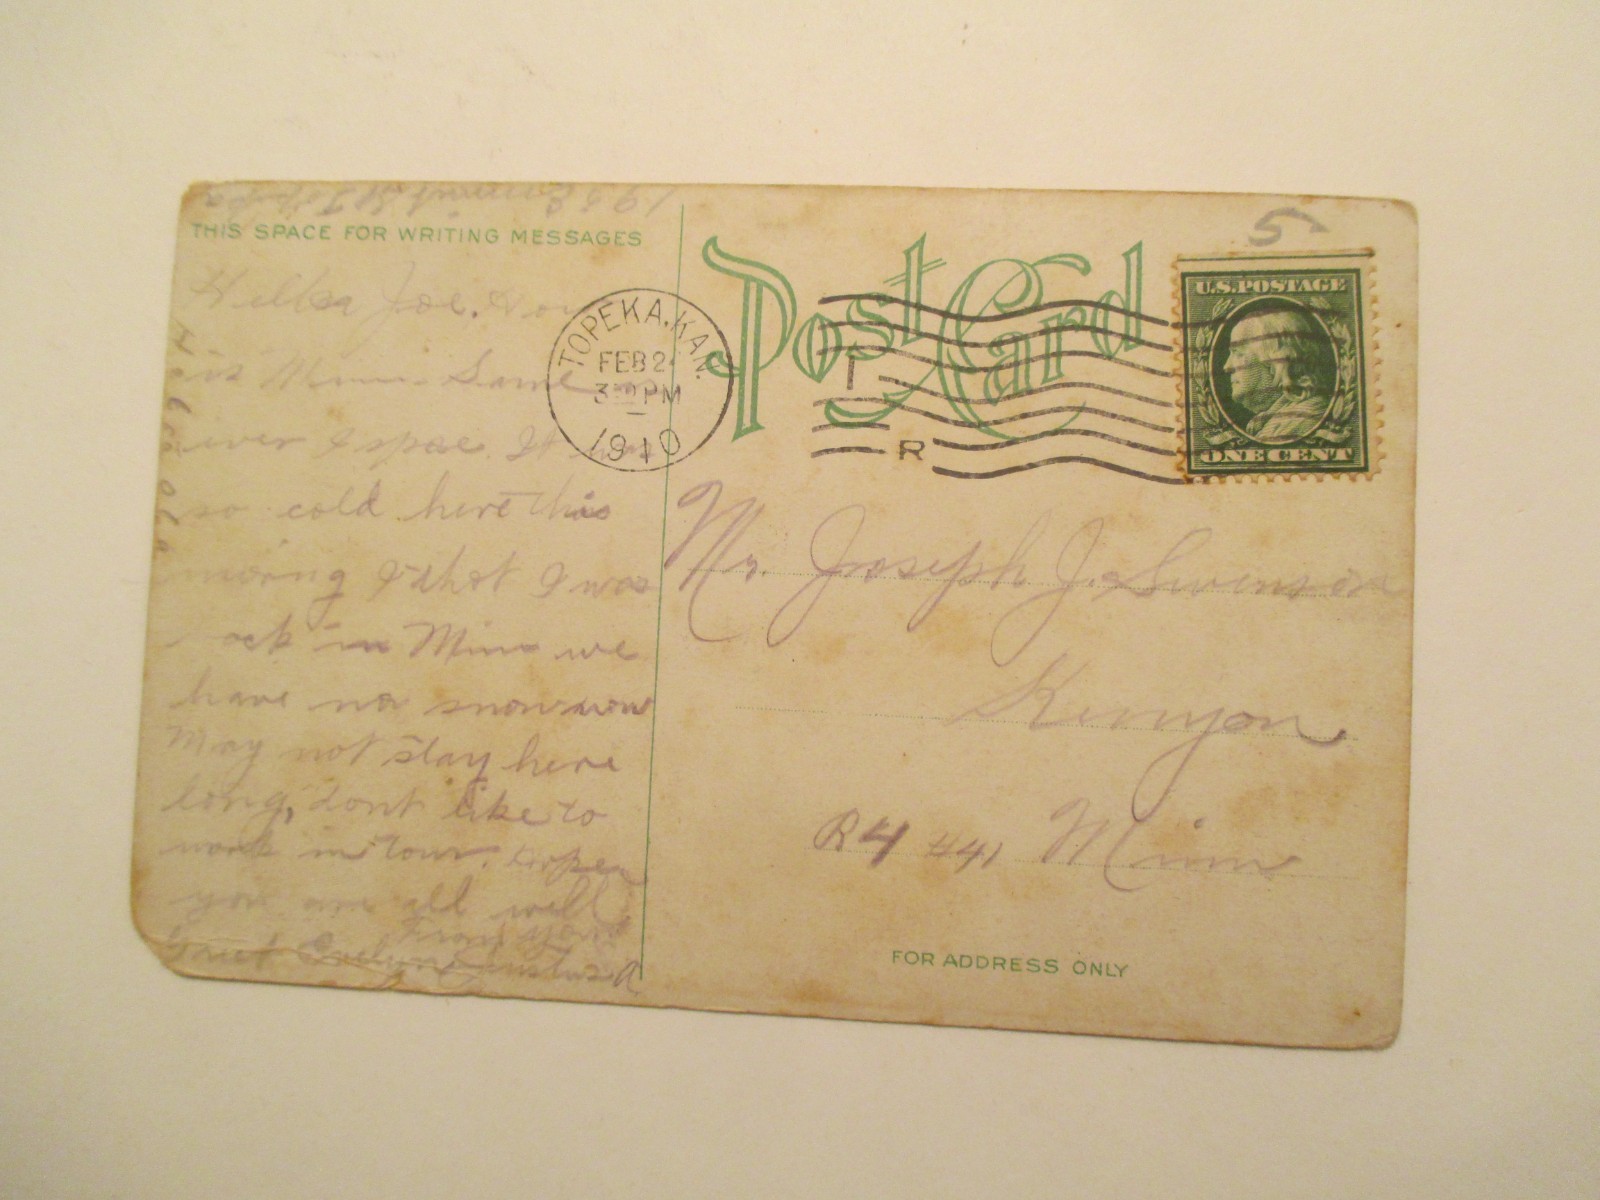 THIS SPACE FOR WRITING MESSAGES
Post Card
5
U.S. POSTAGE
ONE CENT
TOPEKA, KAN.
FEB 2
PM
1910
T
R
Hello Joe. How
is Minn. Same
ever I spoe. It was
so cold here this
moring I that I was
in Minn we
have no snow now
May not stay here
long, dont like to
work in town. hopen
you are all well
from your
Mr. Joseph J. Swenson
Kenyon
R4 #41 Minn
FOR ADDRESS ONLY